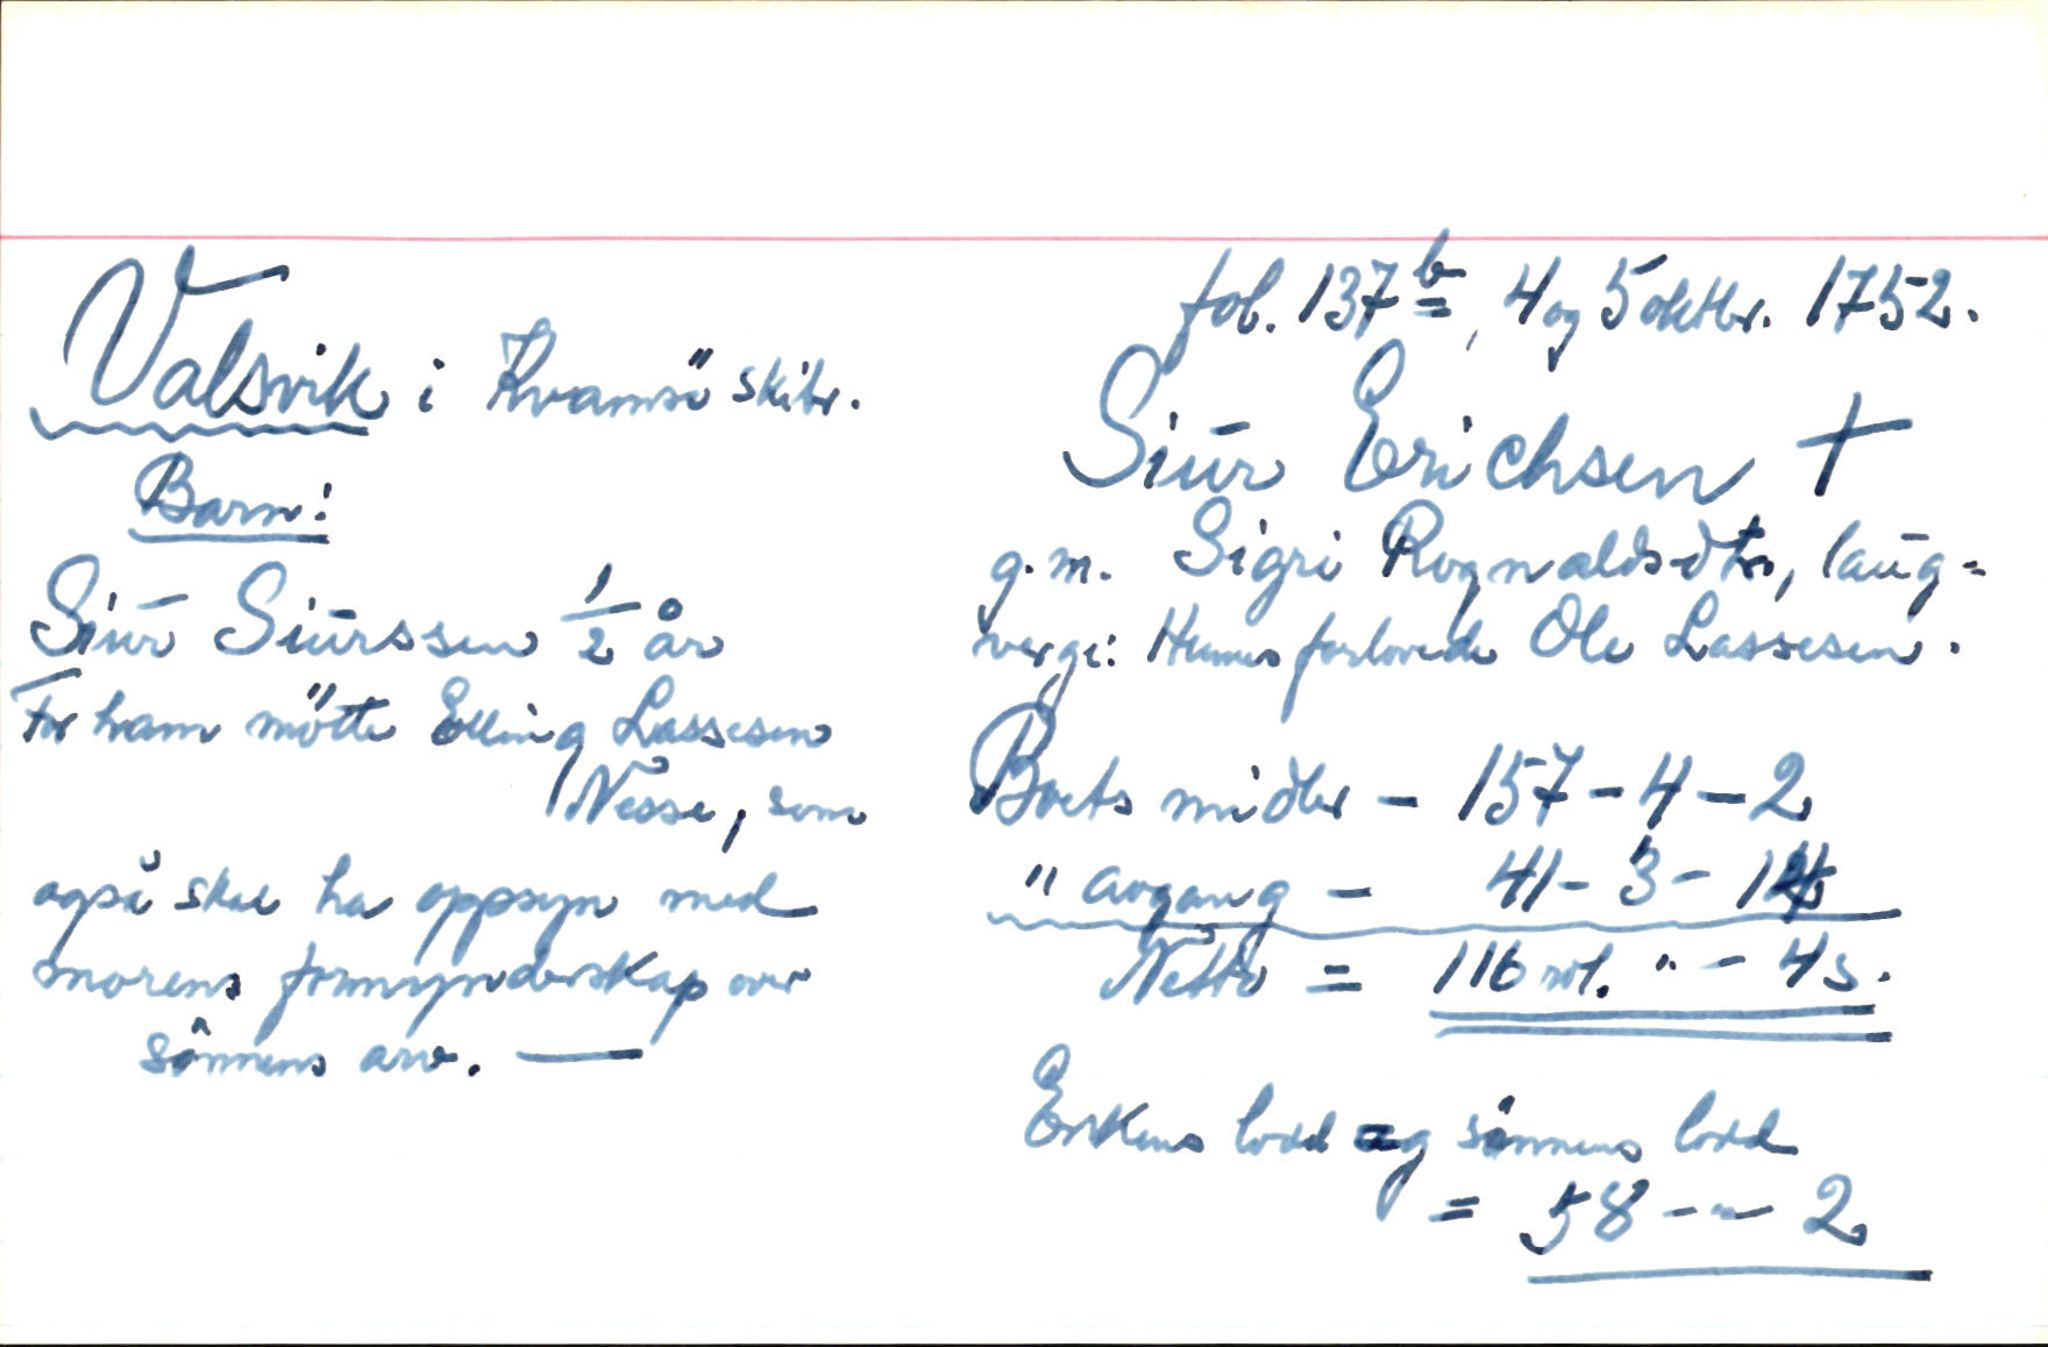 Valsvik i Kvamsö skibr.
Barn:
Siūr Siūrssen 1/2 år
For ham mötte Elling Lassesen
Nesse, som
også skal ha oppsyn med
morens formynderskap over
sönnens arv. —
fol. 137b, 4 og 5 oktbr. 1752.
Siūr Erichsen †
g. m. Sigri Rognaldsdtr, laūg-
verge: Hennes forlovede Ole Lassesen.
Boets midler – 157 – 4 – 2
" avgang – 41 – 3 – 14
Netto = 116 rd. " – 4 s.
Enkens lodd og sönnens lodd
= 58 – " – 2